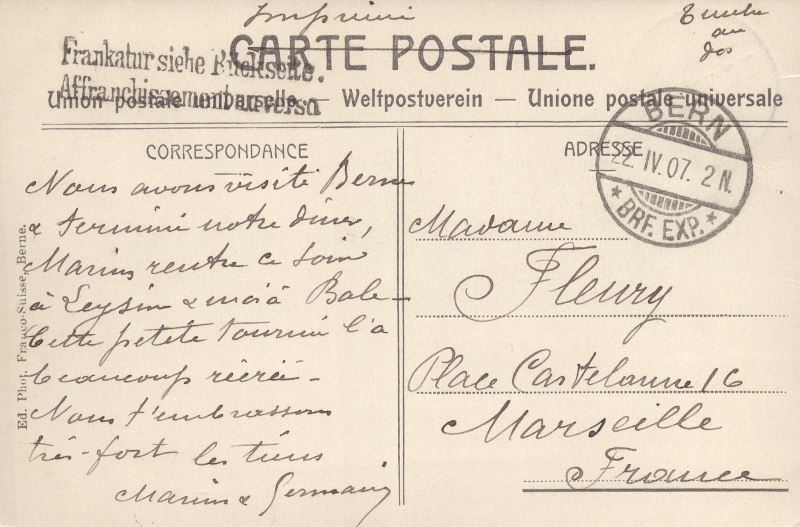 Imprimé
Timbre
au
dos
CARTE POSTALE.
Frankatur siehe Rückseite.
Affranchissement au verso
Union postale universelle — Weltpostverein — Unione postale universale
BERN
22. IV. 07. 2 N.
BRF. EXP.
CORRESPONDANCE
Nous avons visité Berne
& terminé notre dîner,
Marius rentre ce soir
à Leysin & moi à Bale –
Cette petite tournée l'a
beaucoup récréé –
Nous t'embrassons
très-fort les tiens
Marius & Germain
ADRESSE
Madame
Fleury
Place Castelanne 16
Marseille
France
Ed. Phot. Franco-Suisse, Berne.